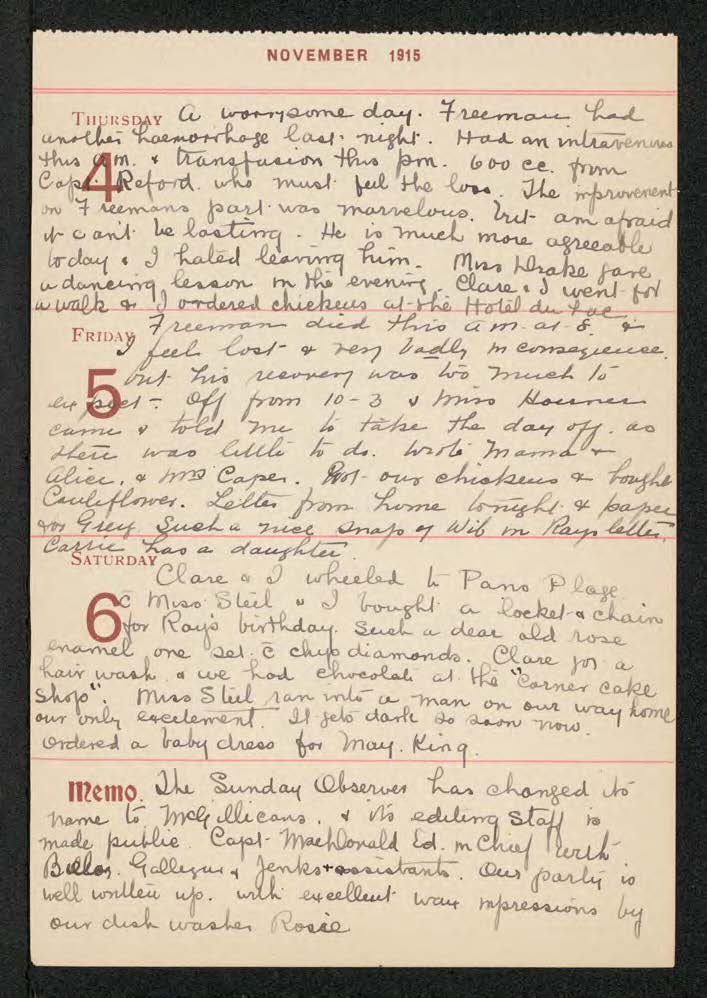 NOVEMBER 1915
THURSDAY A worrysome day. Freeman had
another haemorrhage last night. Had an intravenous
4 this a.m. & transfusion this pm. 600 cc. from
Capt. Reford. who must feel the loss. The improvement
on Freemans part was marvelous. but am afraid
it can't be lasting. He is much more agreeable
today & I hated leaving him. Miss Drake gave
a dancing lesson in the evening. Clare & I went for
a walk & I ordered chickens at the Hotel du Lac
FRIDAY Freeman died this a.m. at 8. &
I feel lost & very badly in consequence.
5 but his recovery was too much to
expect. Off from 10-3 & Miss
came & told me to take the day off. as
there was little to do. Wrote Mama &
Alice. & Mrs Caper. Got our chickens & bought
Cauliflower. Letter from home tonight & paper
for Grey. Such a nice snap of Wib in Rays letter.
Carrie has a daughter.
SATURDAY
Clare & I wheeled to Paris Plage
6 c̄ Miss Steel & I bought a locket & chain
for Ray's birthday. Such a dear old rose
enamel one set c̄ chip diamonds. Clare for a
hair wash & we had chocolate at the "Corner cake
Shop". Miss Steel ran into a man on our way home
our only excitement. It gets dark so soon now.
Ordered a baby dress for May. King.
Memo. The Sunday Observer has changed its
name to McGillicans. & its editing Staff is
made public. Capt- MacDonald Ed. in Chief with
Gallegur & Jenks assistants. Our party is
well written up. with excellent war impressions by
our dish washer Rosie